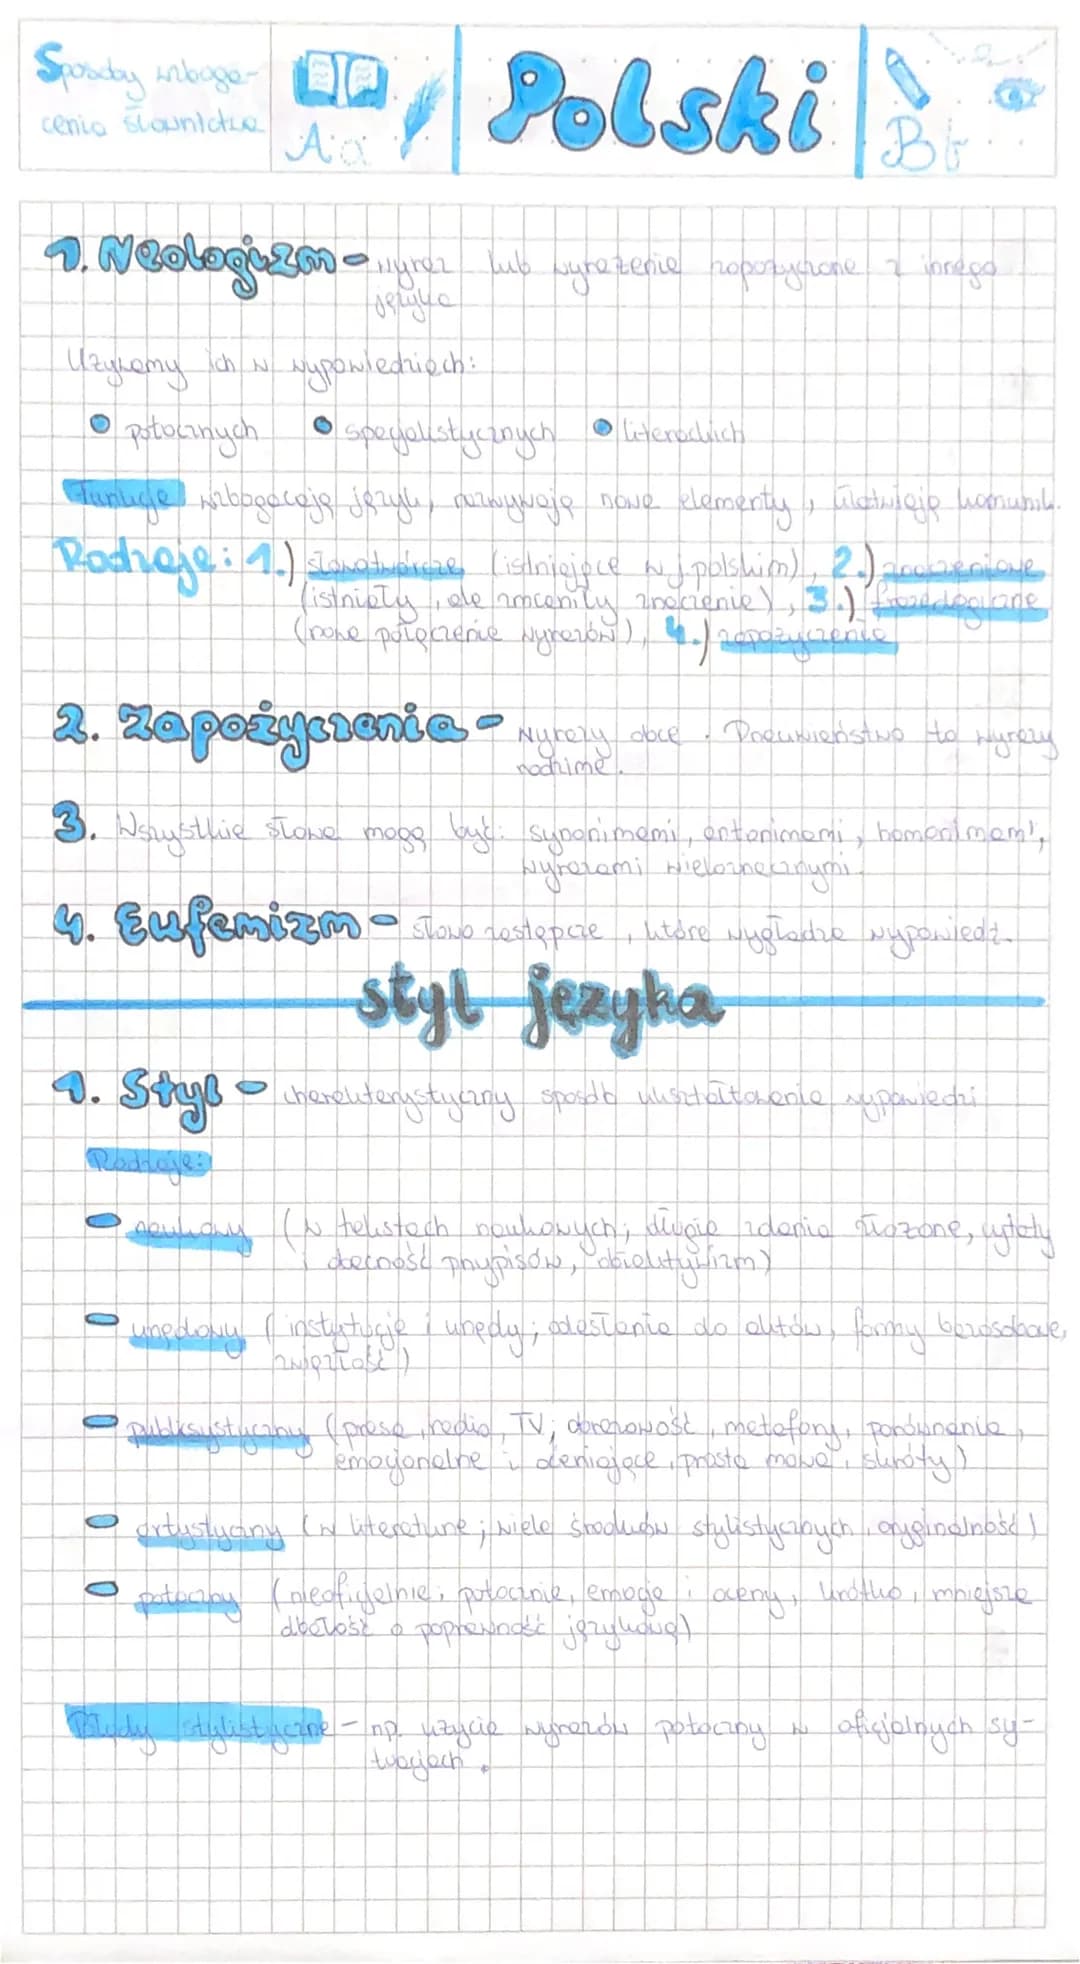 Sposoby wzboga-
cenia słownictwa
Aa
Polski
Bb
1. Neologizm - wyraz lub wyrażenie zapożyczone z innego
języka
Używamy ich w wypowiedziach:
potocznych specjalistycznych literackich
Funkcje wzbogacają język, nazywają nowe elementy, ułatwiają komunik.
Rodzaje: 1.) słowotwórcze (istniejące w j. polskim), 2.) znaczeniowe
(istniały, ale zmieniły znaczenie), 3.) frazeologiczne
(nowe połączenie wyrazów), 4.) zapożyczenia
2. Zapożyczenia - wyrazy obce. Przeciwieństwo to wyrazy
rodzime.
3. Wszystkie słowa mogą być: synonimami, antonimami, homonimami,
wyrazami wieloznacznymi.
4. Eufemizm - słowo zastępcze, które wygładza wypowiedź.
styl języka
1. Styl - charakterystyczny sposób ukształtowania wypowiedzi
Rodzaje:
naukowy (w tekstach naukowych; długie zdania złożone, cytaty
i obecność przypisów, obiektywizm)
urzędowy (instytucje i urzędy; odesłania do aktów, formy bezosobowe,
zwięzłość)
publisystyczny (prasa, radio, TV; obrazowość, metafory, porównania,
emocjonalne i oceniające, prosta mowa, skróty)
artystyczny (w literaturze; wiele środków stylistycznych, oryginalność)
potoczny (nieoficjalnie; potocznie, emocje i oceny, krótko, mniejsza
dbałość o poprawność językową)
Błędy stylistyczne - np. użycie wyrazów potoczny w oficjalnych sy-
tuacjach.